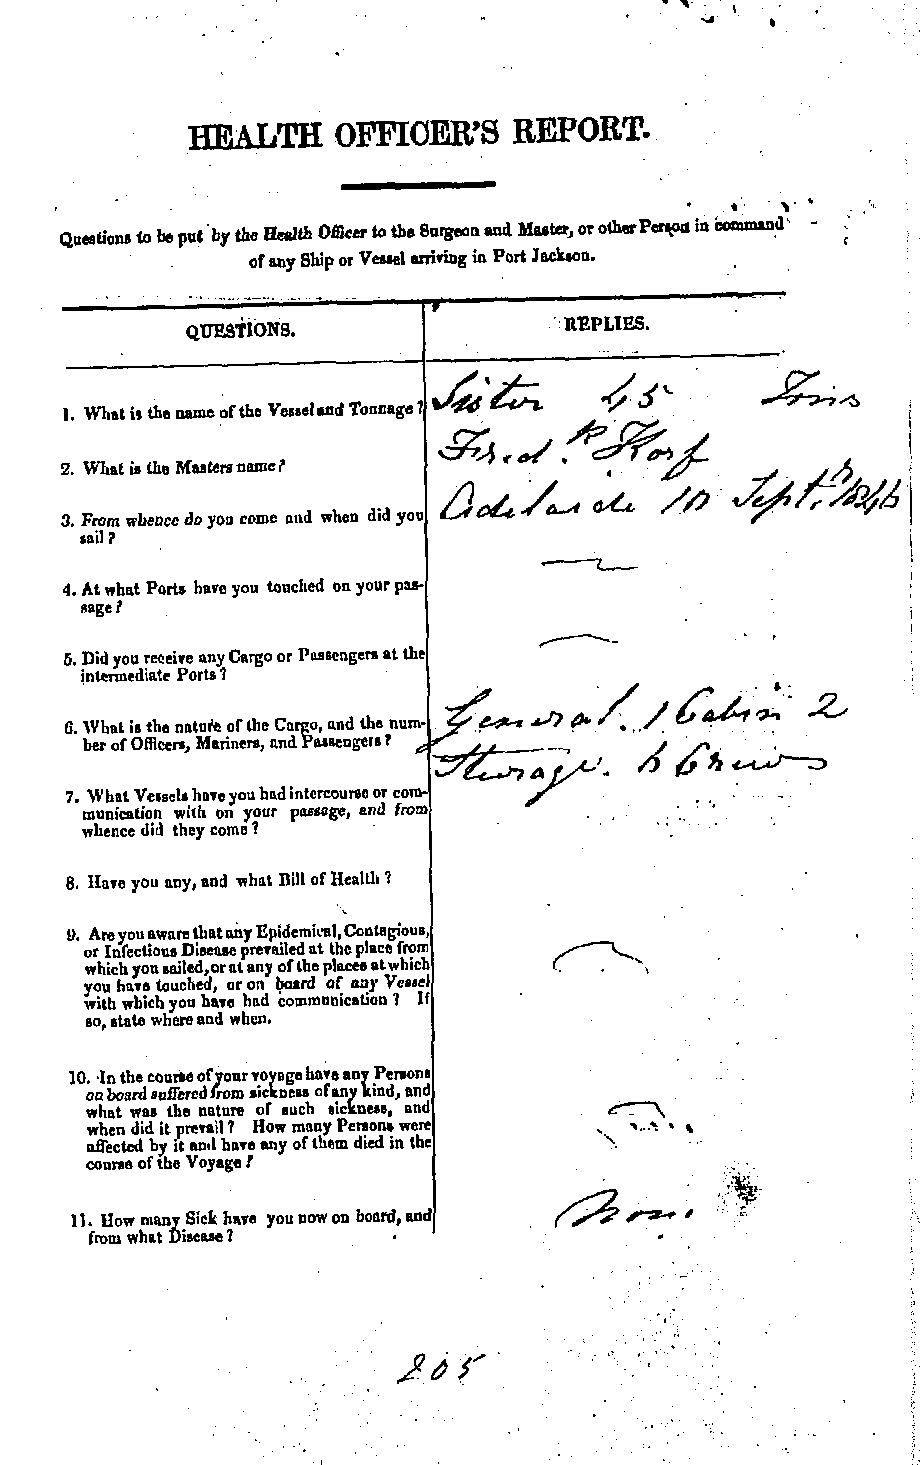 HEALTH OFFICER'S REPORT.
Questions to be put by the Health Officer to the Surgeon and Master, or other Person in command
of any Ship or Vessel arriving in Port Jackson.
QUESTIONS.
REPLIES.
1. What is the name of the Vessel and Tonnage?
Sister 45 Tons
2. What is the Masters name?
Fred.k Korf
3. From whence do you come and when did you
sail?
Adelaide Sept.r 1846
4. At what Ports have you touched on your pas-
sage?
5. Did you receive any Cargo or Passengers at the
intermediate Ports?
6. What is the nature of the Cargo, and the num-
ber of Officers, Mariners, and Passengers?
General. 1 Cabin 2
Sturage. 6 Crew
7. What Vessels have you had intercourse or com-
munication with on your passage, and from
whence did they come?
8. Have you any, and what Bill of Health?
9. Are you aware that any Epidemical, Contagious,
or Infectious Disease prevailed at the place from
which you sailed, or at any of the places at which
you have touched, or on board of any Vessel
with which you have had communication? If
so, state where and when.
10. In the course of your voyage have any Persons
on board suffered from sickness of any kind, and
what was the nature of such sickness, and
when did it prevail? How many Persons were
affected by it and have any of them died in the
course of the Voyage?
11. How many Sick have you now on board, and
from what Disease?
None
205